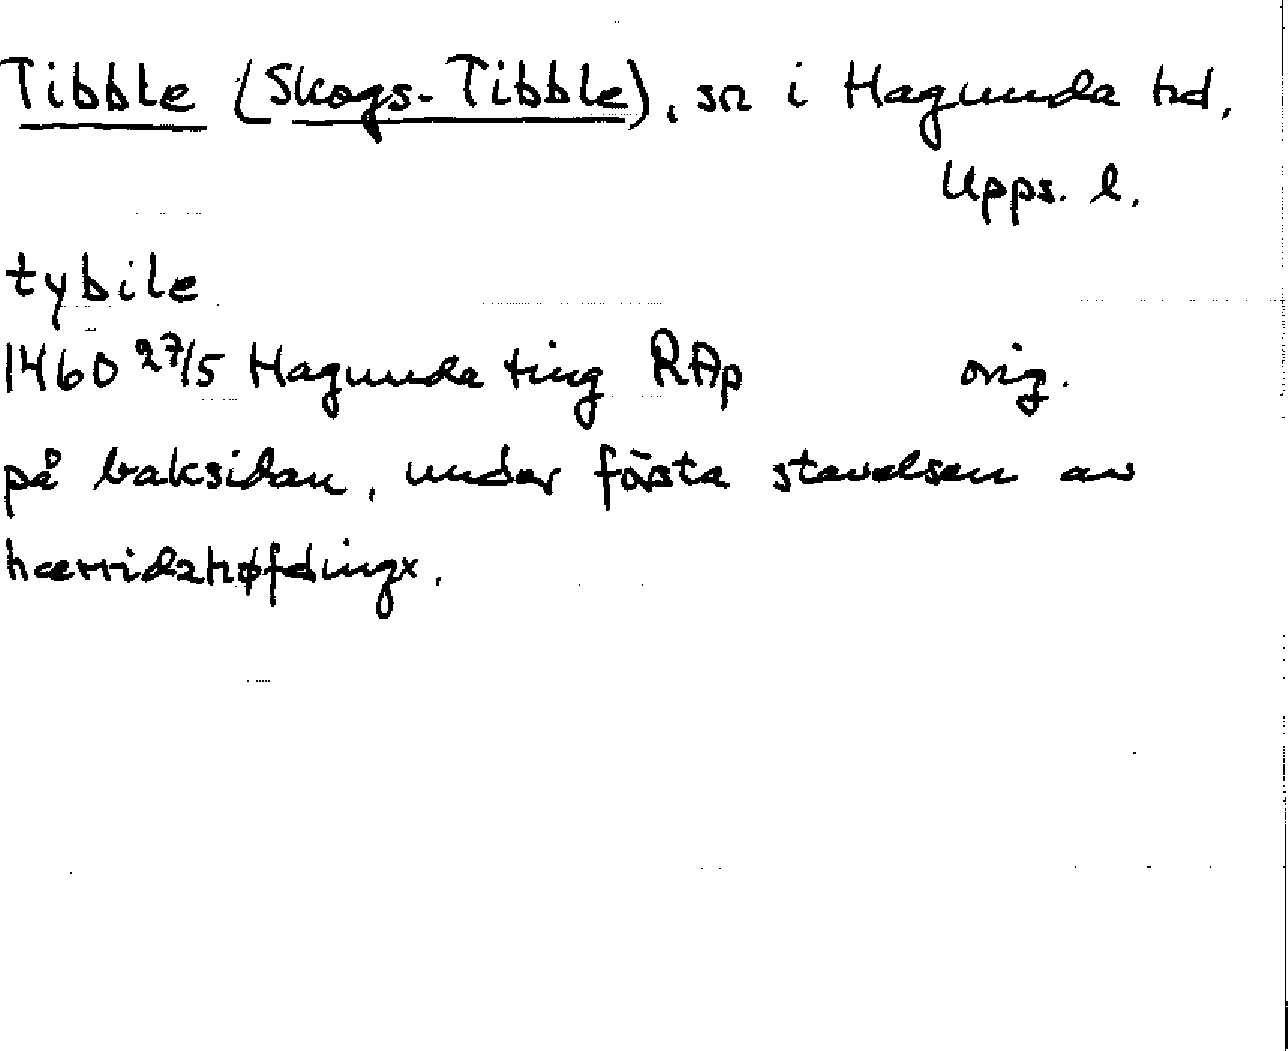 Tibble (Skogs-Tibble), sn i Hagunda hd,
Upps. l.
tybile
1460 27/5 Hagunda ting RAp orig.
på baksidan, under första stavelsen av
hærridzhøfdingx.